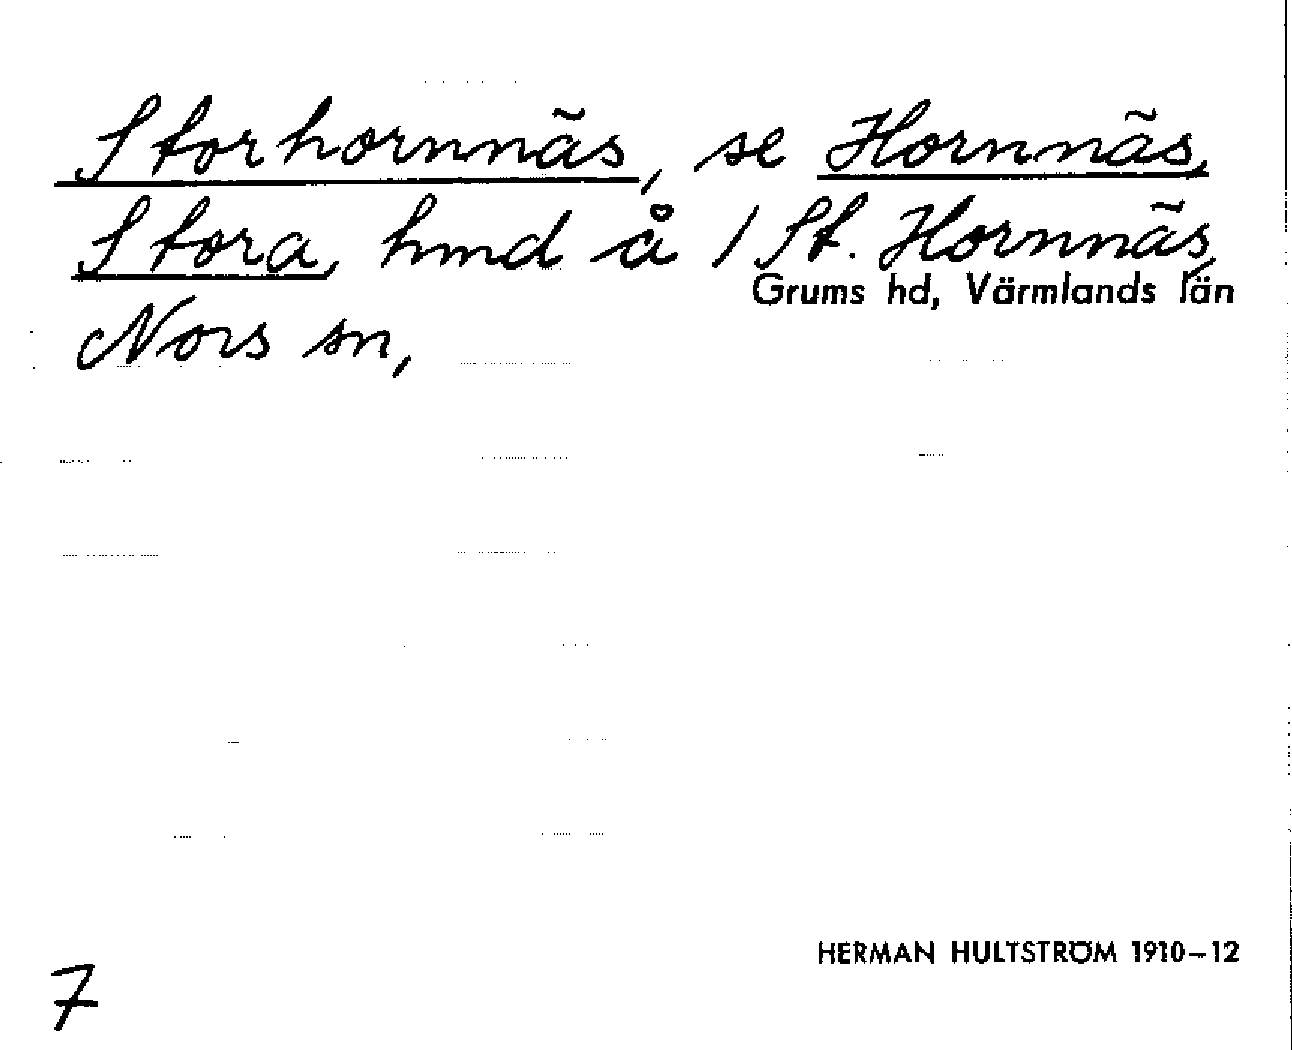 Storhornnäs, se Hornnäs,
Stora, hmd å 1 St. Hornnäs,
Grums hd, Värmlands län
Nors sn,
HERMAN HULTSTRÖM 1910–12
7